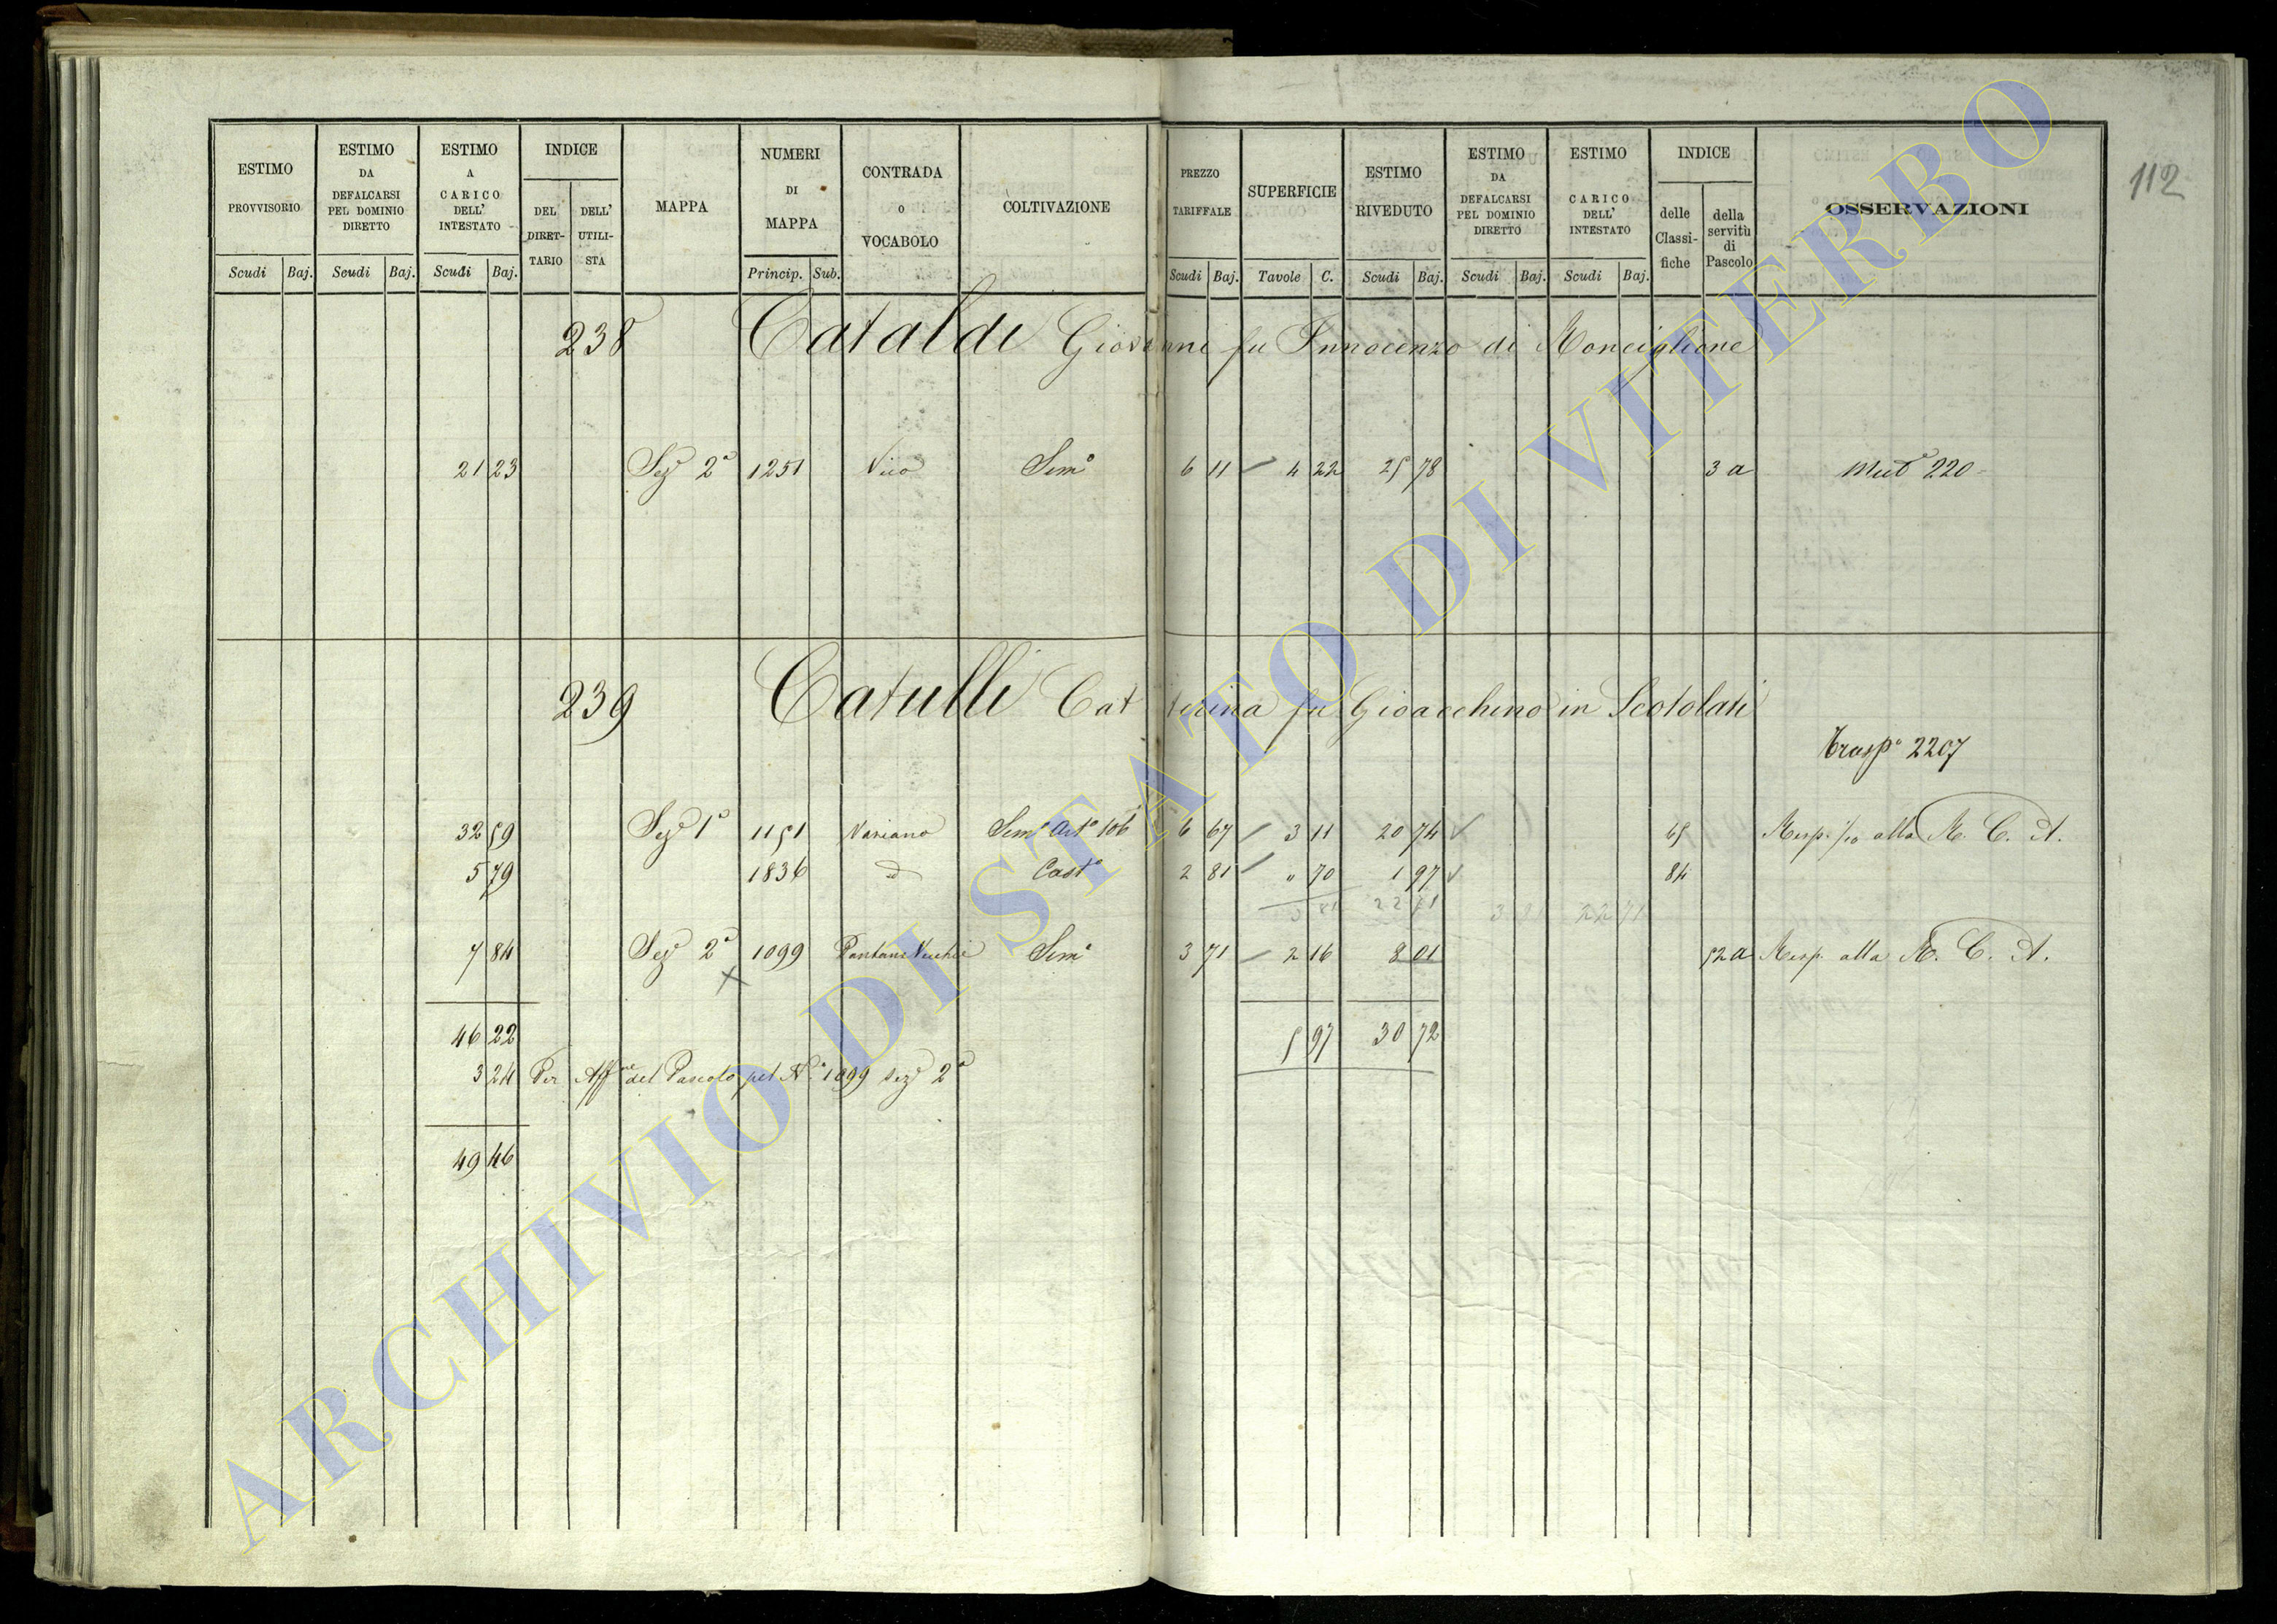 112
ESTIMO PROVVISORIO
ESTIMO DA DEFALCARSI PEL DOMINIO DIRETTO
ESTIMO A CARICO DELL' INTESTATO
INDICE
DEL DIRETTARIO
DELL' UTILISTA
MAPPA
NUMERI DI MAPPA
CONTRADA o VOCABOLO
COLTIVAZIONE
PREZZO TARIFFALE
SUPERFICIE
ESTIMO RIVEDUTO
ESTIMO DA DEFALCARSI PEL DOMINIO DIRETTO
ESTIMO CARICO DELL' INTESTATO
INDICE
delle Classifiche
della servitù di Pascolo
OSSERVAZIONI
Scudi Baj. Scudi Baj. Scudi Baj. Princip. Sub. Scudi Baj. Tavole C. Scudi Baj. Scudi Baj. Scudi Baj.
238 Cataldi Giovanni fu Innocenzo di Ronciglione
21 23 Sez.e 2a 1251 Vico Sem.o 6 11 4 22 25 78 3 a 220
239 Catulli Catterina fu Gioacchino in Scotolati
Trasp.o 2207
32 59 Sez.e 1a 1151 Variano Sem.o Art.o 106 6 67 3 11 20 74 65 Risp. 1/10 alla R. C. A.
5 79 1836 d Cast.o 2 81 " 70 1 97 84
3 81 22 71 3 81 22 71
7 84 Sez.e 2a 1099 Pantani Vecchi Sem.o 3 71 2 16 8 01 52 a Risp. alla R. C. A.
46 22 5 97 30 72
3 24 Per Aff.ne del Pascolo pel N.o 1099 Sez.e 2a
49 46
ARCHIVIO DI STATO DI VITERBO